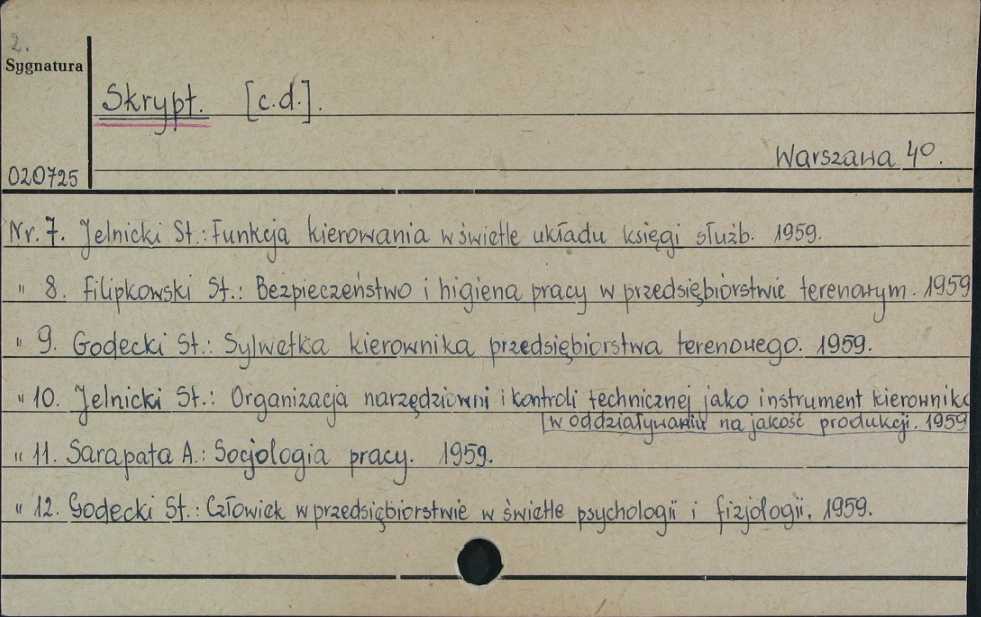 2.
Sygnatura
Skrypt. [c.d.].
Warszawa 4°.
020725
Nr. 7. Jelnicki St.: Funkcja kierowania w świetle układu księgi służb. 1959.
" 8. Filipkowski St.: Bezpieczeństwo i higiena pracy w przedsiębiorstwie terenowym. 1959
" 9. Godecki St.: Sylwetka kierownika przedsiębiorstwa terenowego. 1959.
" 10. Jelnicki St.: Organizacja narzędziowni i kontroli technicznej jako instrument kierownika
[w oddziaływaniu na jakość produkcji. 1959
" 11. Sarapata A.: Socjologia pracy. 1959.
" 12. Godecki St.: Człowiek w przedsiębiorstwie w świetle psychologii i fizjologii. 1959.